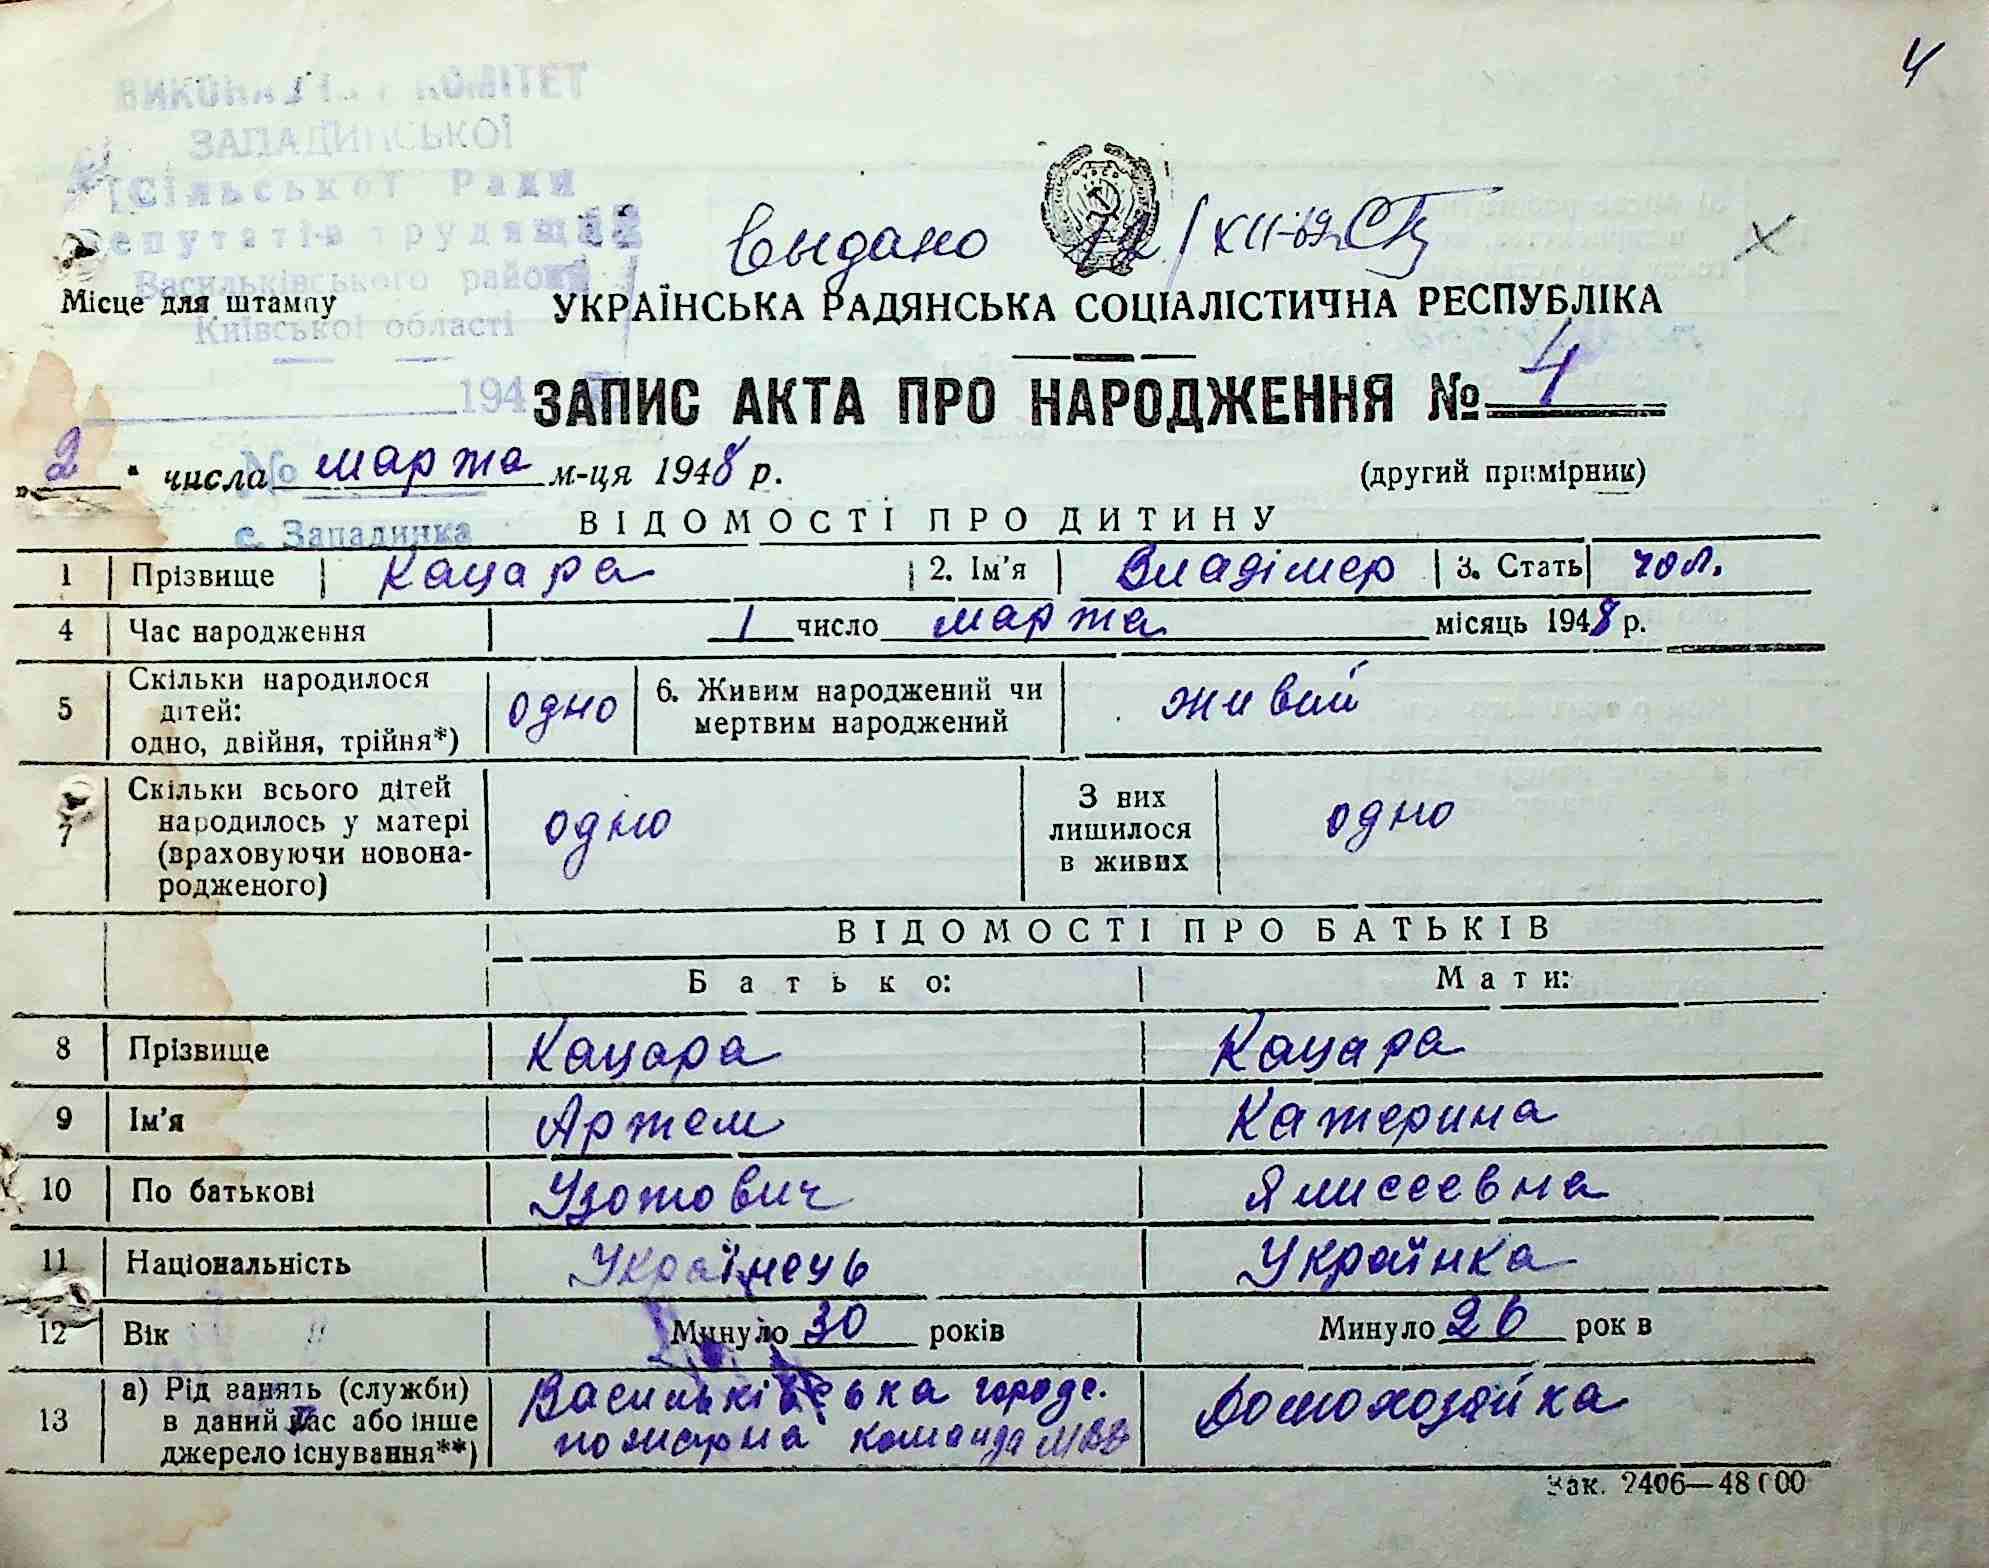 4
ВИКОНАВЧИЙ КОМІТЕТ
ЗАПАДИНСЬКОЇ
Сільської Ради
депутатів трудящих
Васильківського району
Київської області
194
№
с. Западинка
Выдано 12/XII-69г.
Місце для штампу
УКРАЇНСЬКА РАДЯНСЬКА СОЦІАЛІСТИЧНА РЕСПУБЛІКА
ЗАПИС АКТА ПРО НАРОДЖЕННЯ № 4
„2" числа марта м-ця 1948 р.
(другий примірник)
ВІДОМОСТІ ПРО ДИТИНУ
1 Прізвище Кацара 2. Ім'я Владімер 3. Стать чол.
4 Час народження 1 число марта місяць 1948 р.
5 Скільки народилося дітей: одно, двійня, трійня*) одно 6. Живим народжений чи мертвим народжений живий
7 Скільки всього дітей народилось у матері (враховуючи новонародженого) одно З них лишилося в живих одно
ВІДОМОСТІ ПРО БАТЬКІВ
Батько: Мати:
8 Прізвище Кацара Кацара
9 Ім'я Артем Катерина
10 По батькові Узотович Ялисеевна
11 Національність Українець Українка
12 Вік Минуло 30 років Минуло 26 рок в
13 а) Рід занять (служби) в даний час або інше джерело існування**) Васильківська городс. пожарна команда МВВ Домохозяйка
Зак. 2406—48000